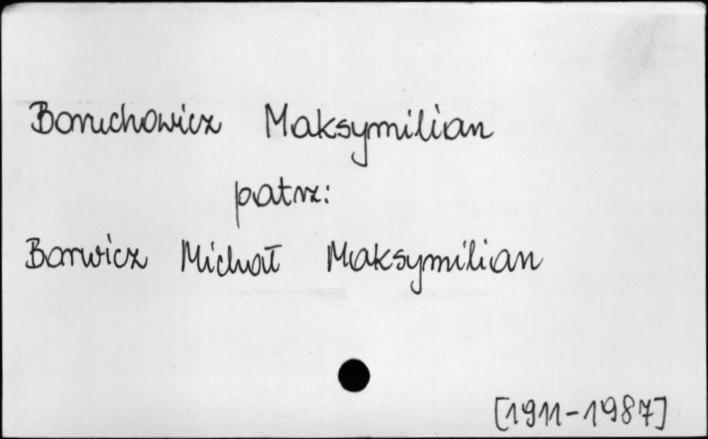 Boruchowicz Maksymilian
patrz:
Borwicz Michał Maksymilian
[1911-1987]